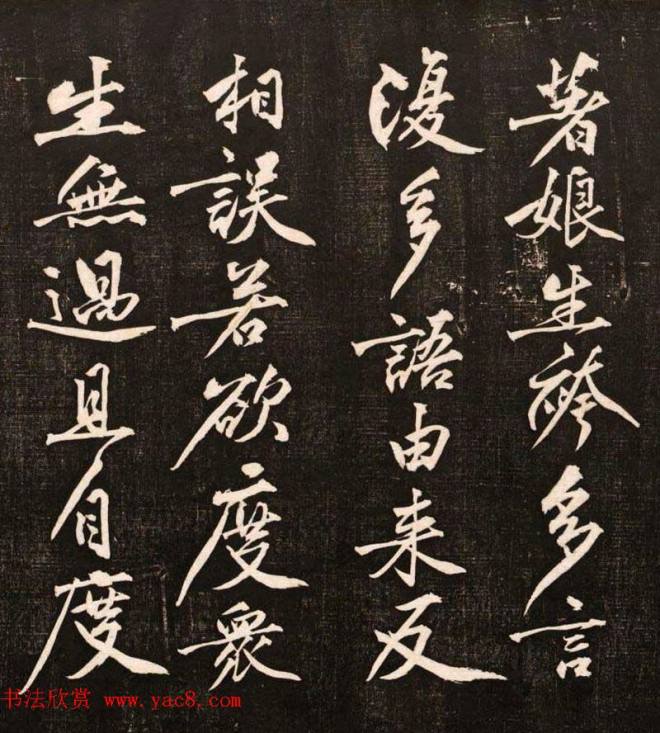 著娘生袴多言
復多語由来反
相誤若欲度眾
生無過且自度
书法欣赏 www.yac8.com